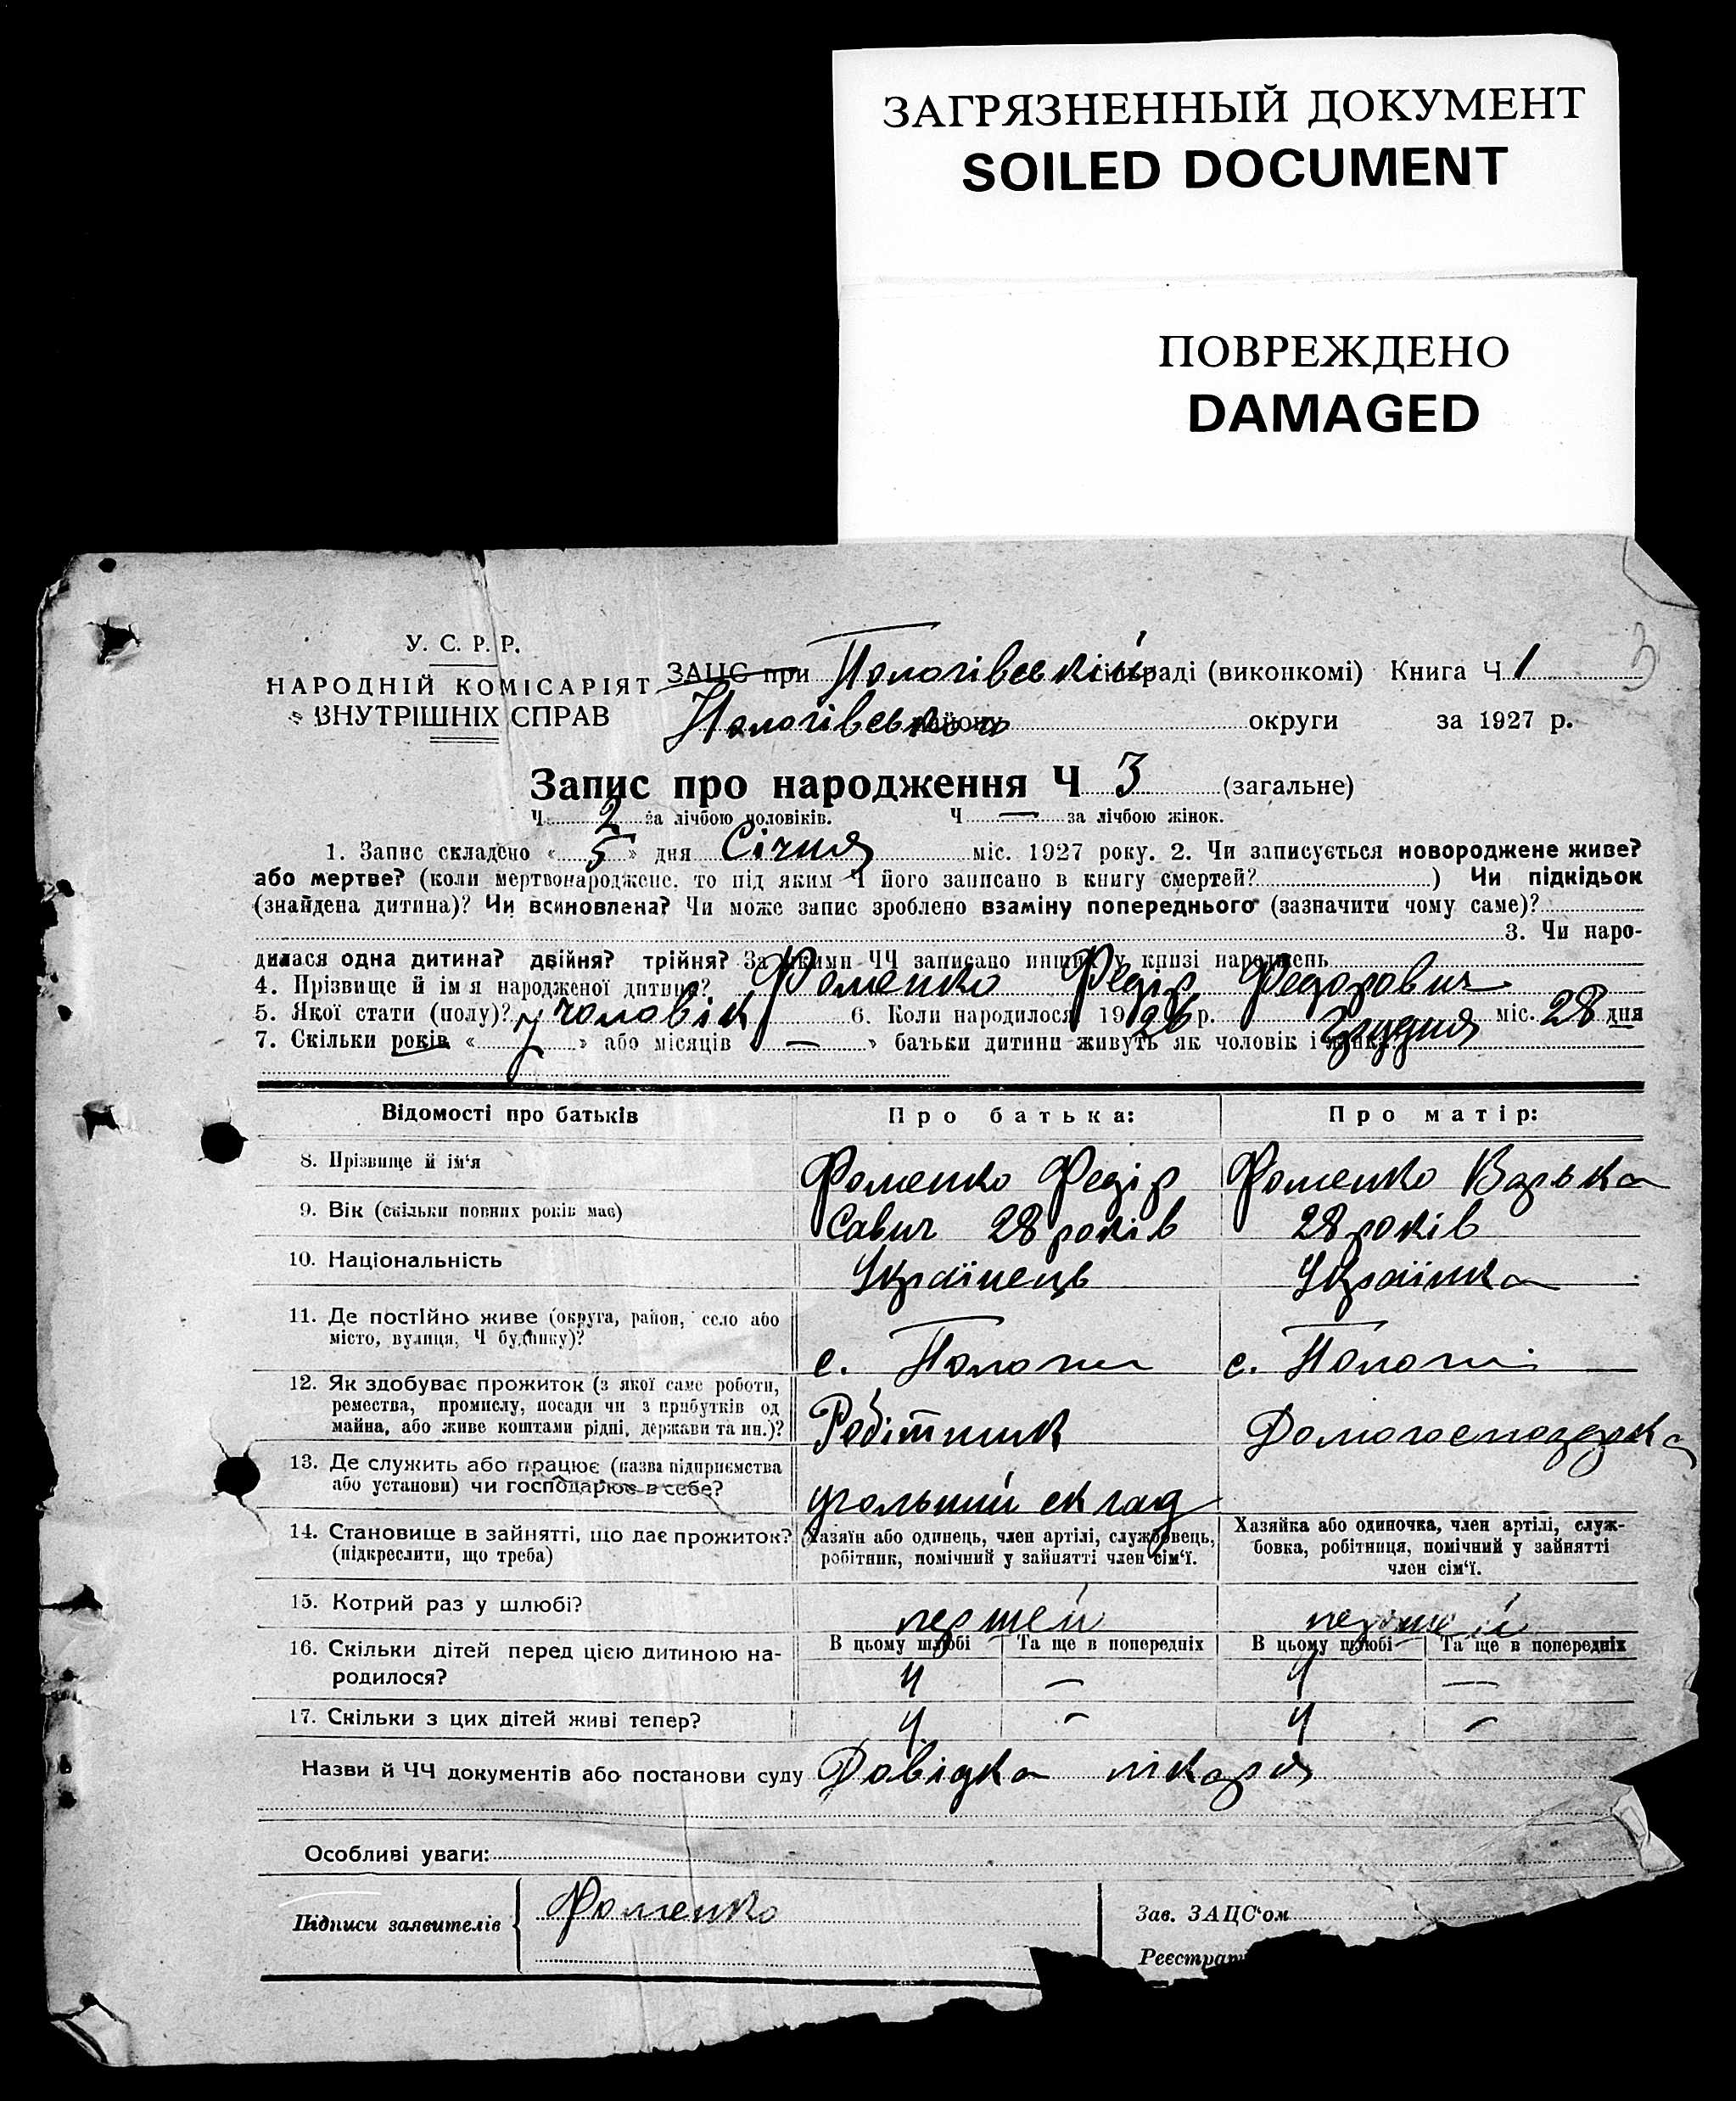 ЗАГРЯЗНЕННЫЙ ДОКУМЕНТ
SOILED DOCUMENT
ПОВРЕЖДЕНО
DAMAGED
3
У. С. Р. Р.
НАРОДНІЙ КОМІСАРІЯТ
ВНУТРІШНІХ СПРАВ
ЗАЦС при Пологівській сільраді (виконкомі) Книга Ч 1
Пологівського району округи за 1927 р.
Запис про народження Ч 3 (загальне)
Ч 2 за лічбою чоловіків. Ч — за лічбою жінок.
1. Запис складено « 5 » дня Січня міс. 1927 року. 2. Чи записується новороджене живе?
або мертве? (коли мертвонароджене, то під яким Ч його записано в книгу смертей?) Чи підкідьок
(знайдена дитина)? Чи всиновлена? Чи може запис зроблено взаміну попереднього (зазначити чому саме)?
3. Чи наро-
дилася одна дитина? двійня? трійня? За якими ЧЧ записано инших у книзі народжень
4. Прізвище й ім'я народженої дитини? Фоменко Федір Федорович
5. Якої стати (полу)? чоловік 6. Коли народилося 1926 р. Грудня міс. 28 дня
7. Скільки років « 7 » або місяців « — » батьки дитини живуть як чоловік і жінка
Відомості про батьків
Про батька:
Про матір:
8. Прізвище й ім'я Фоменко Федір Фоменко Варька
9. Вік (скільки повних років має) Савич 28 років 28 років
10. Національність Українець Українка
11. Де постійно живе (округа, район, село або
місто, вулиця, Ч будинку)? с. Пологи с. Пологи
12. Як здобуває прожиток (з якої саме роботи,
ремества, промислу, посади чи з прибутків од
майна, або живе коштами рідні, держави та ин.)? Робітник Домогосподарка
13. Де служить або працює (назва підприємства
або установи) чи господарює в себе? угольний склад
14. Становище в зайнятті, що дає прожиток?
(підкреслити, що треба)
Хазяїн або одинець, член артілі, службовець,
робітник, помічний у зайнятті член сім'ї.
Хазяйка або одиночка, член артілі, служ-
бовка, робітниця, помічний у зайнятті
член сім'ї.
15. Котрий раз у шлюбі? перший перший
16. Скільки дітей перед цією дитиною на-
родилося?
В цьому шлюбі Та ще в попередніх В цьому шлюбі Та ще в попередніх
4 — 4 —
17. Скільки з цих дітей живі тепер? 4 — 4 —
Назви й ЧЧ документів або постанови суду Довідка лікаря
Особливі уваги:
Підписи заявителів Фоменко
Зав. ЗАЦС'ом
Реєстрат